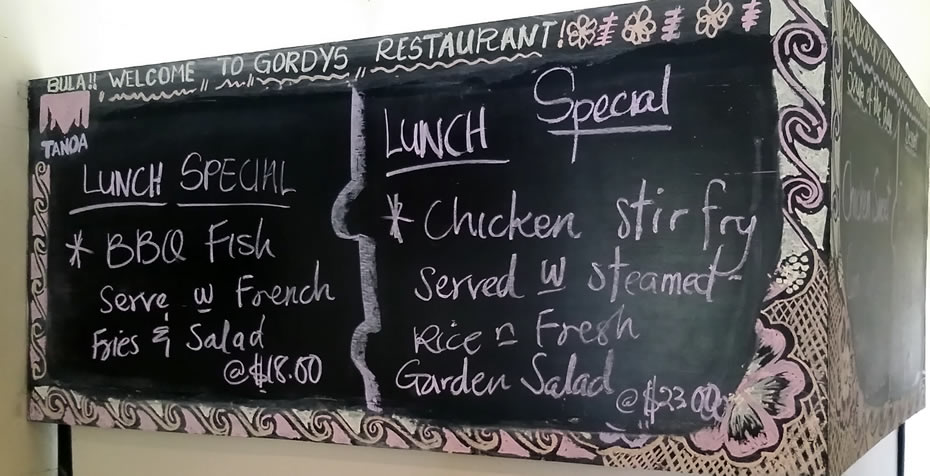 BULA!! WELCOME TO GORDYS RESTAURANT!
TANOA
LUNCH SPECIAL
* BBQ Fish
Serve w French
Fries & Salad
@ $18.00
LUNCH Special
* Chicken stir fry
Served w steamed
Rice n Fresh
Garden Salad
@ $23.00
of the day